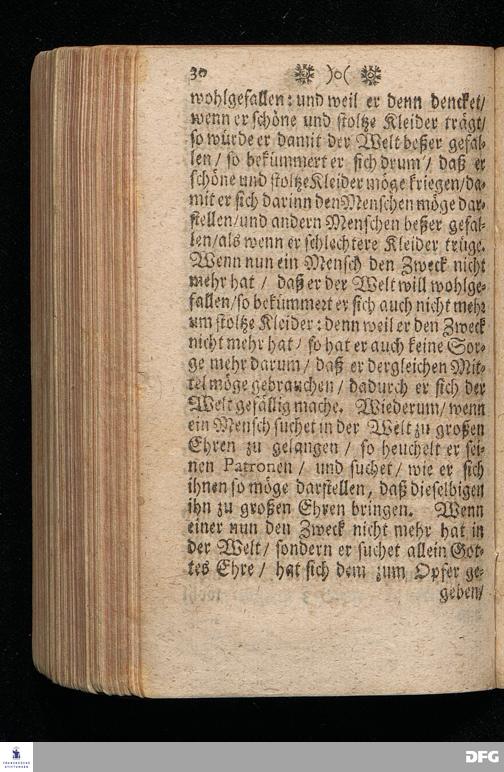 30 )o(
wohlgefallen: und weil er denn dencket/
wenn er schöne und stoltze Kleider trägt/
so würde er damit der Welt beßer gefal-
len/ so bekümmert er sich drum/ daß er
schöne und stoltze Kleider möge kriegen/da-
mit er sich darinn den Menschen möge dar-
stellen/und andern Menschen beßer gefal-
len/als wenn er schlechtere Kleider trüge.
Wenn nun ein Mensch den Zweck nicht
mehr hat / daß er der Welt will wohlge-
fallen/so bekümmert er sich auch nicht mehr
um stoltze Kleider: denn weil er den Zweck
nicht mehr hat/ so hat er auch keine Sor-
ge mehr darum/ daß er dergleichen Mit-
tel möge gebrauchen / dadurch er sich der
Welt gefällig mache. Wiederum/ wenn
ein Mensch suchet in der Welt zu großen
Ehren zu gelangen / so heuchelt er sei-
nen Patronen / und suchet/ wie er sich
ihnen so möge darstellen, daß dieselbigen
ihn zu großen Ehren bringen. Wenn
einer nun den Zweck nicht mehr hat in
der Welt/ sondern er suchet allein Got-
tes Ehre / hat sich dem zum Opfer ge-
geben/
FRANCKESCHE
STIFTUNGEN
DFG